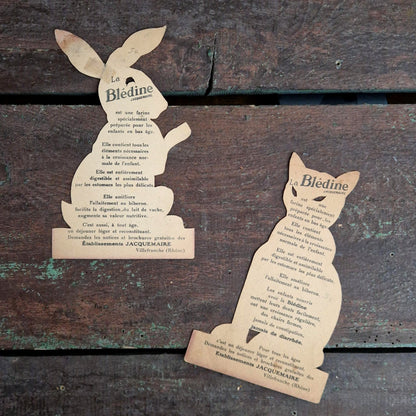 La
Blédine
JACQUEMAIRE
est une farine
spécialement
préparée pour les
enfants en bas âge.
Elle contient tous les
éléments nécessaires
à la croissance nor-
male de l'enfant.
Elle est entièrement
digestible et assimilable
par les estomacs les plus délicats.
Elle améliore
l'allaitement au biberon,
facilite la digestion du lait de vache,
augmente sa valeur nutritive.
C'est aussi, à tout âge,
un déjeuner léger et reconstituant.
Demandez les notices et brochures gratuites des
Établissements JACQUEMAIRE
Villefranche (Rhône)
La
Blédine
JACQUEMAIRE
est une farine
spécialement
préparée pour les
enfants en bas âge.
Elle contient tous les
éléments nécessaires
à la croissance nor-
male de l'enfant.
Elle est entièrement
digestible et assimilable
par les estomacs les plus délicats.
Elle améliore
l'allaitement au biberon.
Les enfants nourris
avec la Blédine
mettent leurs dents facilement,
ont une croissance régulière,
des chairs fermes,
jamais de constipation,
jamais de diarrhée.
Pour tous les âges
c'est un déjeuner léger et reconstituant.
Demandez les notices et brochures gratuites des
Établissements JACQUEMAIRE
Villefranche (Rhône)